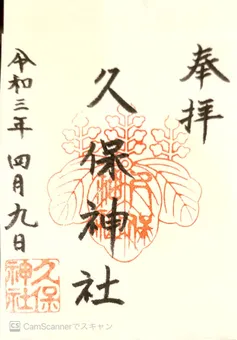 奉拝
久保神社
令和三年 四月九日
久保
神社
CS CamScannerでスキャン